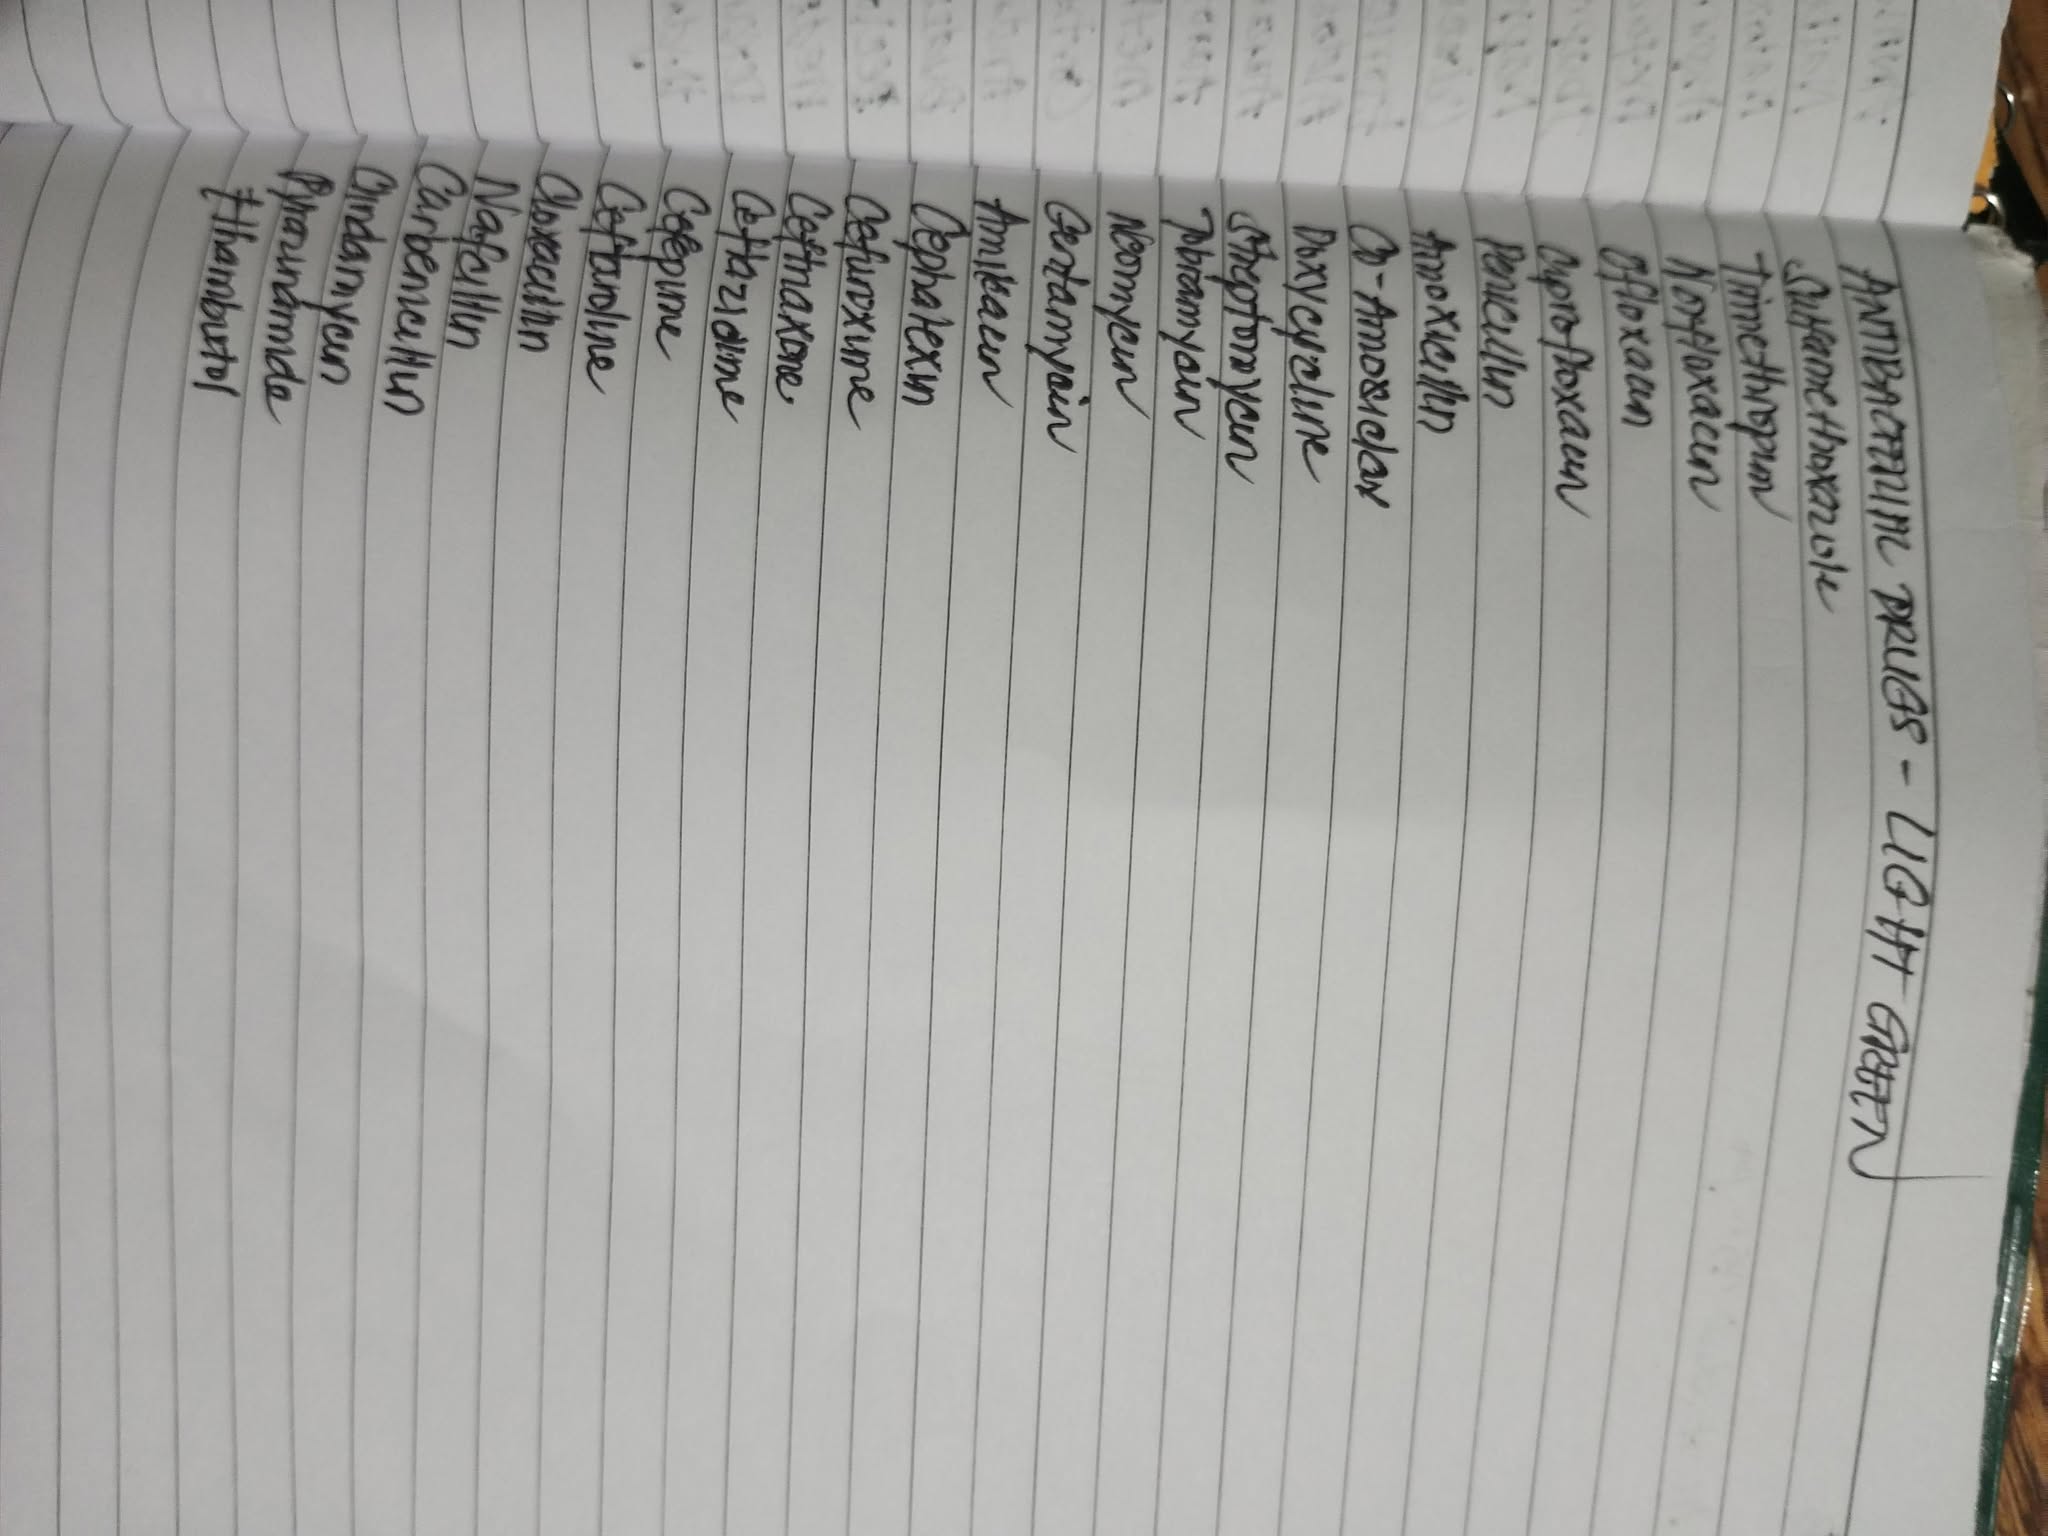 ANTIBACTERIAL DRUGS - LIGHT GREEN
Sulfamethoxazole
Trimethoprim
Norfloxacin
Ofloxacin
Ciprofloxacin
Penicillin
Amoxicillin
Co-Amoxiclav
Doxycycline
Streptomycin
Tobramycin
Neomycin
Gentamycin
Amikacin
Cephalexin
Cefuroxime
Ceftriaxone.
Ceftazidime
Cefepime
Ceftaroline
Cloxacillin
Nafcillin
Carbenicillin
Clindamycin
Pyrazinamide
Ethambutol